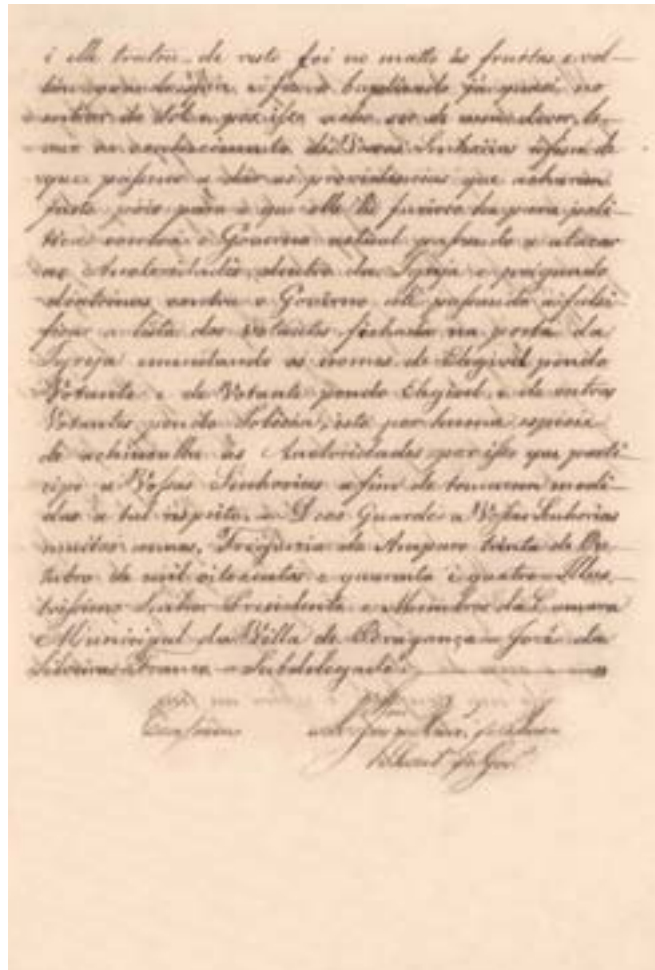 i elle tratou de resto foi no matto ás fruttas e vol-
tou e foi o baptizado já quasi no
entrar do Sol e por isso acho ser de meu dever le-
var ao conhecimento de Vossas Senhorias afim de
que passem a dár as providencias que acharem
justo pois para o que elle he para poli-
tica contra o Governo actual passando a atacar
as Authoridades dentro da Igreja e preguando
doutrinas contra o Governo até passando a falsi-
ficar a lista dos Votantes fechada na porta da
Igreja emendando os nomes de Elegivel pondo
Votante e de Votante pondo Elegivel, e de outros
Votantes pondo isto por huma especie
de achincalhe ás Authoridades por isso que parti-
cipo a Vossas Senhorias afim de tomarem medi-
das a tal respeito. Deos Guarde a Vossas Senhorias
muitos annos. Freguezia do Amparo trinta de Ou-
tubro de mil oitocentos e quarenta e quatro Illus-
trissimo Senhor Presidente e Membros da Camara
Municipal da Villa de Bragança José da
Silveira Franco Subdelegado
Conforme